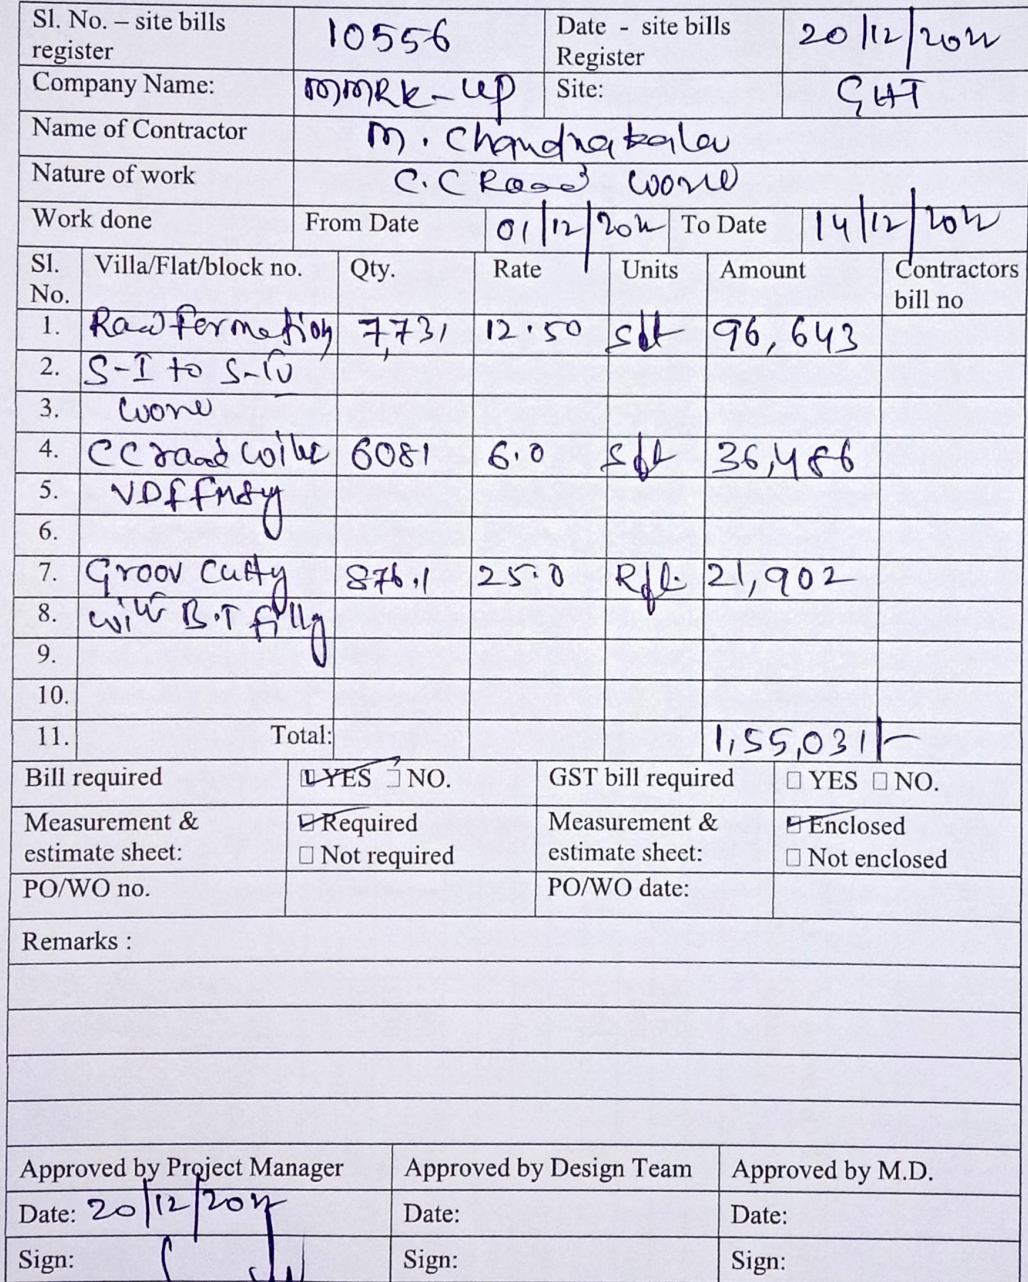 Sl. No. – site bills register 10556 Date - site bills Register 20/12/2022
Company Name: MMRK-UP Site: GHT
Name of Contractor M. Chandrakala
Nature of work C.C Road work
Work done From Date 01/12/2022 To Date 14/12/2022
Sl. No. Villa/Flat/block no. Qty. Rate Units Amount Contractors bill no
1. Road formation 7,731 12.50 Sft 96,643
2. S-I to S-IV
3. work
4. CC road with 6081 6.0 Sft 36,486
5. VDF
6.
7. Groov Cutty 876.1 25.0 Rft 21,902
8. with B.T filly
9.
10.
11. Total: 1,55,031/-
Bill required YES NO. GST bill required YES NO.
Measurement & estimate sheet: Required Not required Measurement & estimate sheet: Enclosed Not enclosed
PO/WO no. PO/WO date:
Remarks :
Approved by Project Manager Approved by Design Team Approved by M.D.
Date: 20/12/2022 Date: Date:
Sign: Sign: Sign: